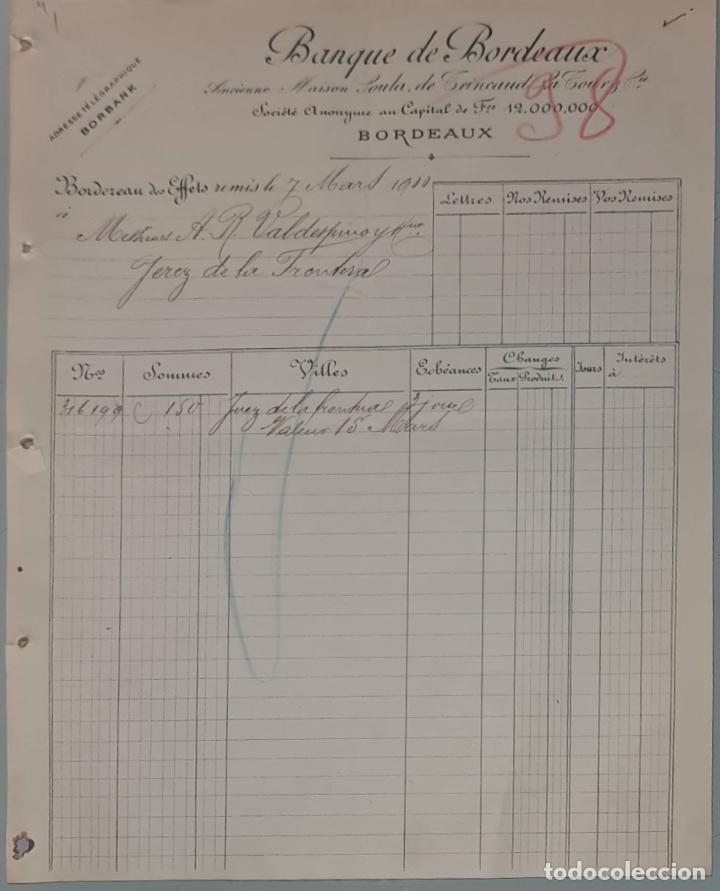 ADRESSE TÉLÉGRAPHIQUE
BORBANK
Banque de Bordeaux
Ancienne Maison Soula, de Trincaud La Tour & Cie
Société Anonyme au Capital de Frs 12.000.000
BORDEAUX
58
Bordereau des Effets remis le 7 Mars 1911
à
Messieurs A. R. Valdespino y Hno
Jerez de la Frontera
Lettres Nos Remises Vos Remises
Nos Sommes Villes Echéances Changes Jours Intérêts
Taux Produits à
316199 150 Jerez de la frontera 8 jours
Valeur 15 Mars
todocoleccion.net